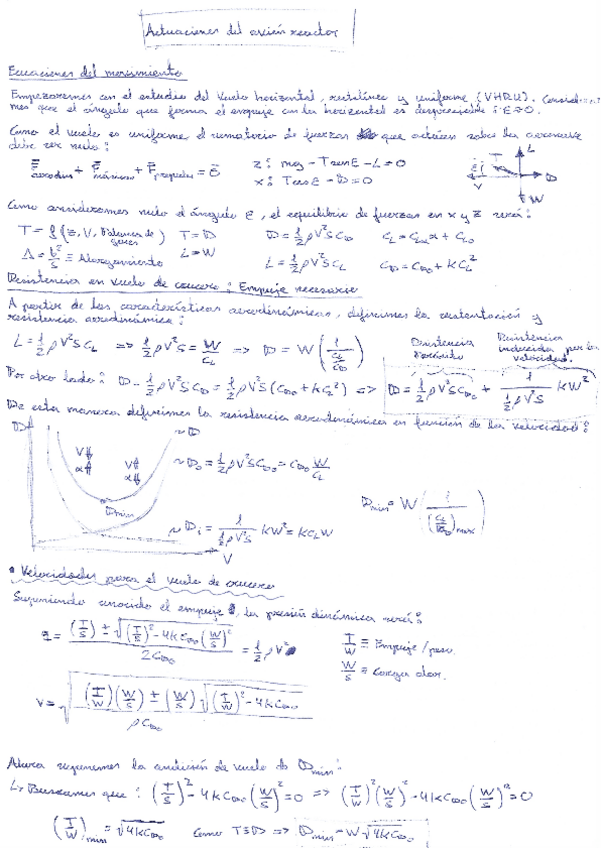 Actuaciones del avión reactor
Ecuaciones del movimiento
Empezaremos con el estudio del vuelo horizontal, rectilíneo y uniforme (VHRU).
mos que el ángulo que forma el empuje con la horizontal es despreciable : E≃0.
Como el vuelo es uniforme el sumatorio de fuerzas que actúan sobre la aeronave
debe ser nulo:
F + F + F = 0
z: mg - T sen E - L = 0
x: T cos E - D = 0
L T D V W
Como consideramos nulo el ángulo E, el equilibrio de fuerzas en x y z será:
T = f(z, V, Palanca de gases) T = D D = 1/2 ρV²SC_D C_L = C_Lα α + C_L0
Λ = b²/S ≡ Alargamiento L = W L = 1/2 ρV²SC_L C_D = C_D0 + kC_L²
Resistencia en vuelo de crucero: Empuje necesario
A partir de las características aerodinámicas, definimos la sustentación y
resistencia aerodinámica:
L = 1/2 ρV²SC_L => 1/2 ρV²S = W/C_L => D = W (1/(C_L/C_D))
Resistencia
Resistencia inducida por la velocidad.
Por otro lado: D = 1/2 ρV²SC_D = 1/2 ρV²S(C_D0 + kC_L²) => D = 1/2 ρV²SC_D0 + 1/(1/2 ρV²S) kW²
De esta manera definimos la resistencia aerodinámica en función de la velocidad:
D
~ D
V⇈ α⇊
V⇊ α⇈
Dmin
~ D_0 = 1/2 ρV²SC_D0 = C_D0 W/C_L
D_min = W (1/(C_L/C_D)_max)
~ D_i = 1/(1/2 ρV²S) kW² = kC_L W
V
• Velocidades para el vuelo de crucero
Suponiendo conocido el empuje, la presión dinámica será:
q = ((T/S) ± √((T/S)² - 4kC_D0 (W/S)²))/(2C_D0) = 1/2 ρV²
T/W ≡ Empuje/peso.
W/S ≡ Carga alar.
V = √(((T/W)(W/S) ± (W/S)√((T/W)² - 4kC_D0))/(ρC_D0))
Ahora suponemos la condición de vuelo de D_min:
↳ Buscamos que: (T/S)² - 4kC_D0 (W/S)² = 0 => (T/W)²(W/S)² - 4kC_D0 (W/S)² = 0
(T/W)_min = √4kC_D0 Como T=D => D_min = W√4kC_D0